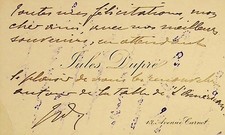 Toutes mes félicitations mon
cher ami avec mes meilleurs
souvenirs, en attendant
Jules Dupré
le plaisir de vous
autour de la table de l'
Avenue Carnot